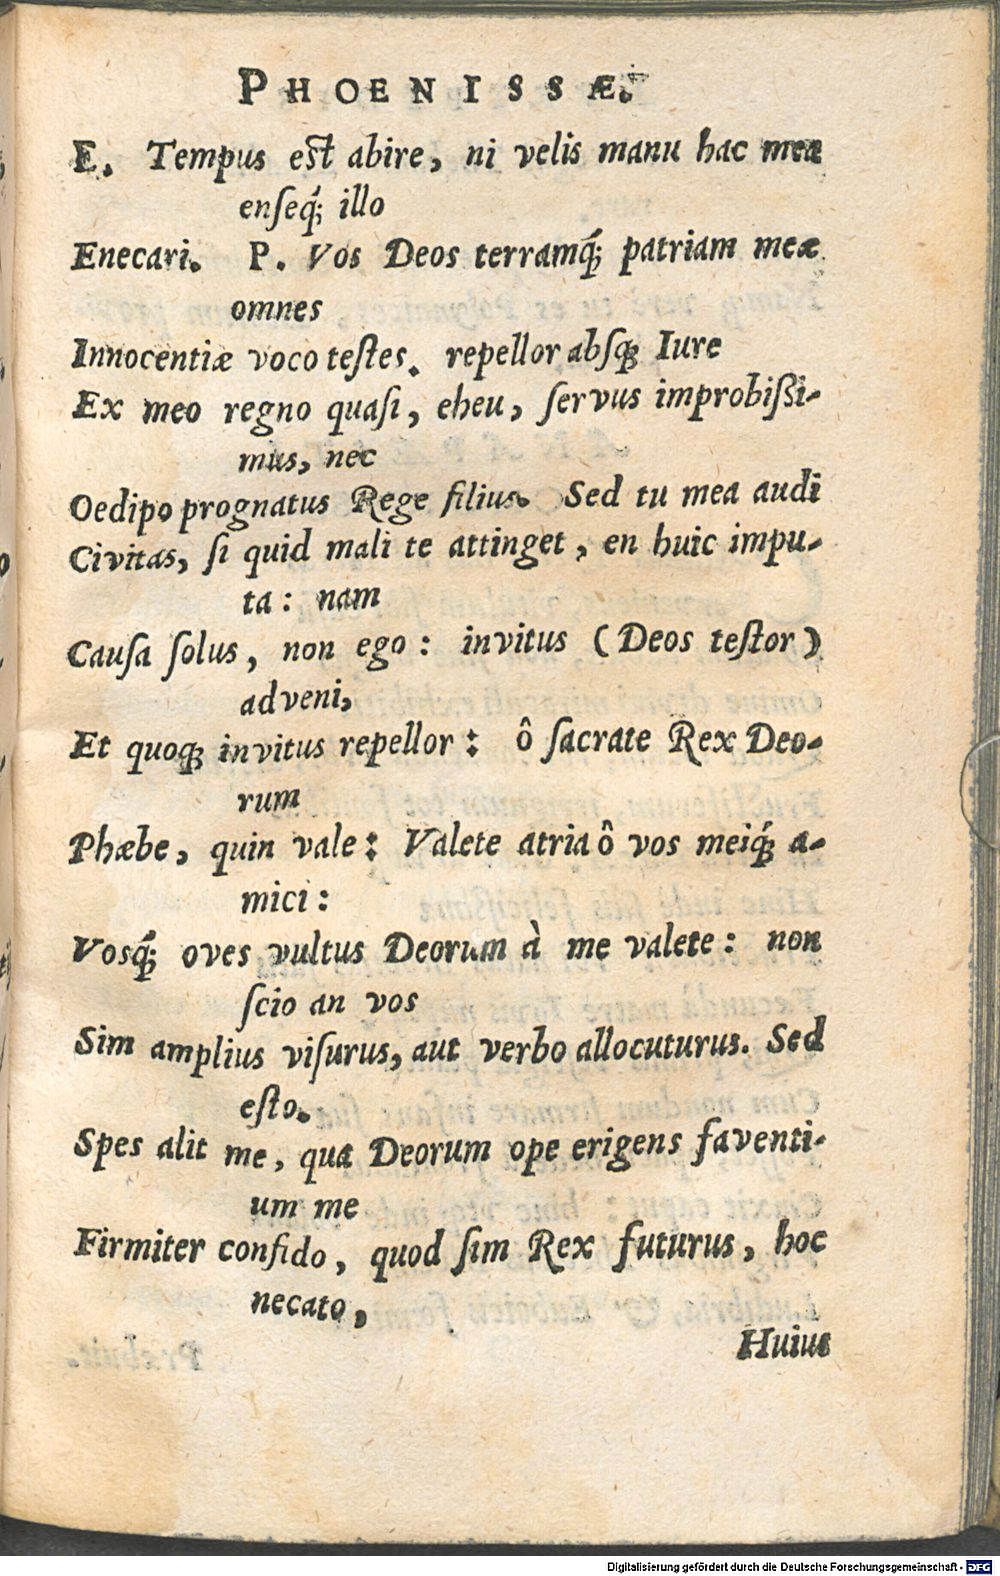 PHOENISSÆ.
E. Tempus est abire, ni velis manu hac mea
enſeq́; illo
Enecari. P. Vos Deos terramq́; patriam meæ
omnes
Innocentiæ voco teſtes. repellor abſq; Iure
Ex meo regno quaſi, eheu, ſervus improbiſsi-
mus, nec
Oedipo prognatus Rege filius. Sed tu mea audi
Civitas, ſi quid mali te attinget, en huic impu-
ta: nam
Cauſa ſolus, non ego: invitus (Deos teſtor)
adveni,
Et quoq; invitus repellor: ô ſacrate Rex Deo-
rum
Phæbe, quin vale: Valete atria ô vos meiq́; a-
mici:
Vosq́; oves vultus Deorum à me valete: non
ſcio an vos
Sim amplius viſurus, aut verbo allocuturus. Sed
eſto.
Spes alit me, qua Deorum ope erigens faventi-
um me
Firmiter confido, quod ſim Rex futurus, hoc
necato,
Huius
Digitalisierung gefördert durch die Deutsche Forschungsgemeinschaft - DFG